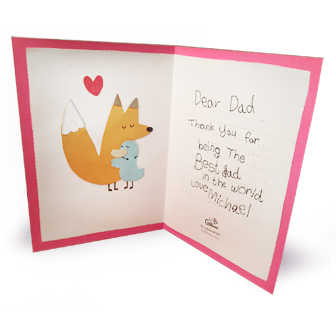 Dear Dad
Thank you for
being The
Best dad
in the world
Love Michael